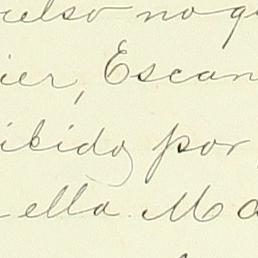 celso no
ier, Escan
ibido por
ella Ma